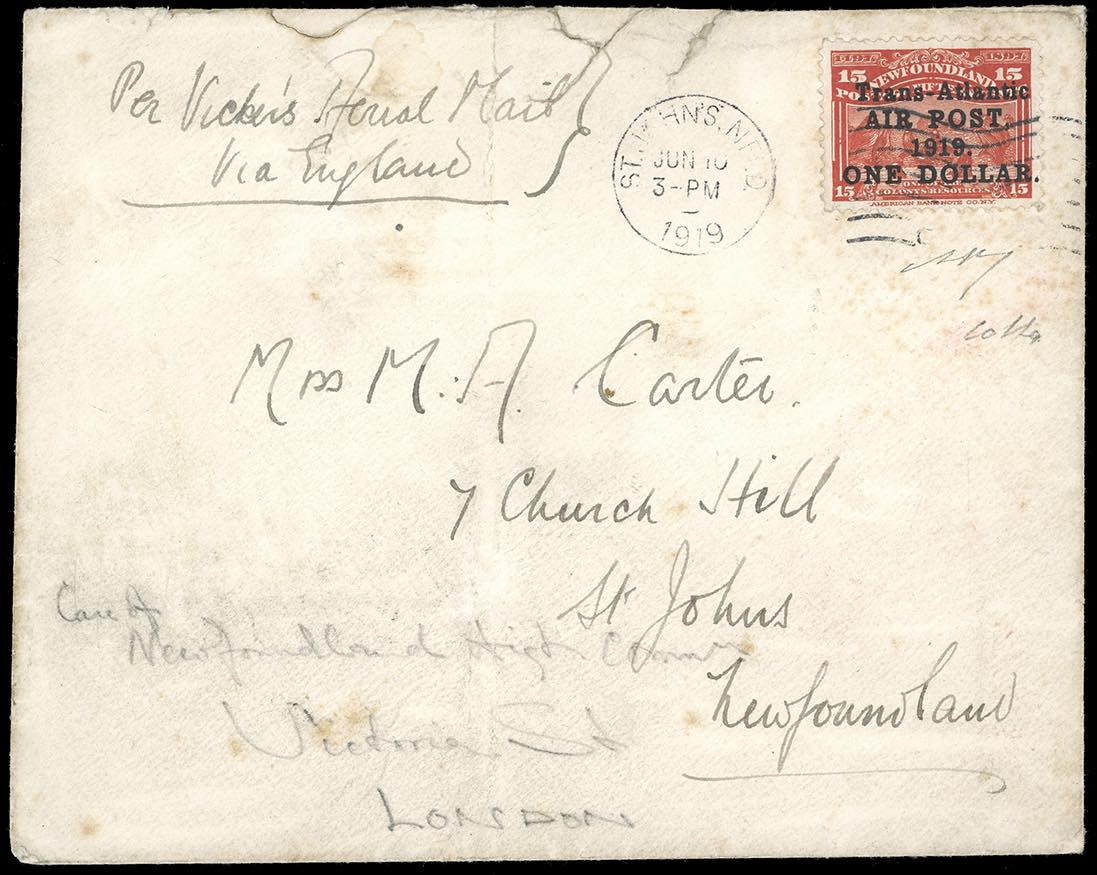 Per Vicker's Aerial Mail
Via England
ST. JOHN'S, NF'D.
JUN 10
3-PM
1919
1497 1897
15 NEWFOUNDLAND 15
Trans-Atlantic
AIR POST,
1919.
ONE DOLLAR.
15 15
COLONY'S RESOURCES
AMERICAN BANK NOTE CO. N.Y.
Miss M. A. Carter.
7 Church Hill
St Johns
Newfoundland
Care of
Newfoundland High Commr
Victoria St
LONDON